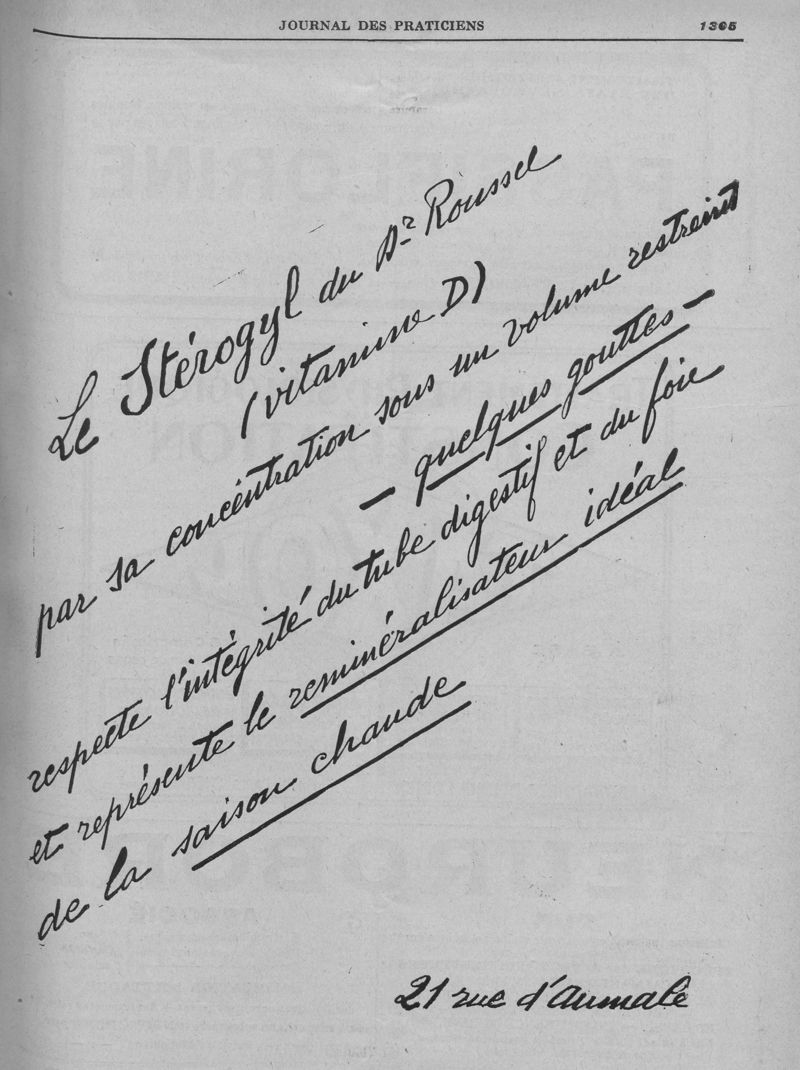 JOURNAL DES PRATICIENS 1305
Le Stérogyl du Dr Roussel
(vitamine D)
par sa concentration sous un volume restreint
— quelques gouttes —
respecte l'intégrité du tube digestif et du foie
et représente le reminéralisateur idéal
de la saison chaude
21 rue d'Aumale